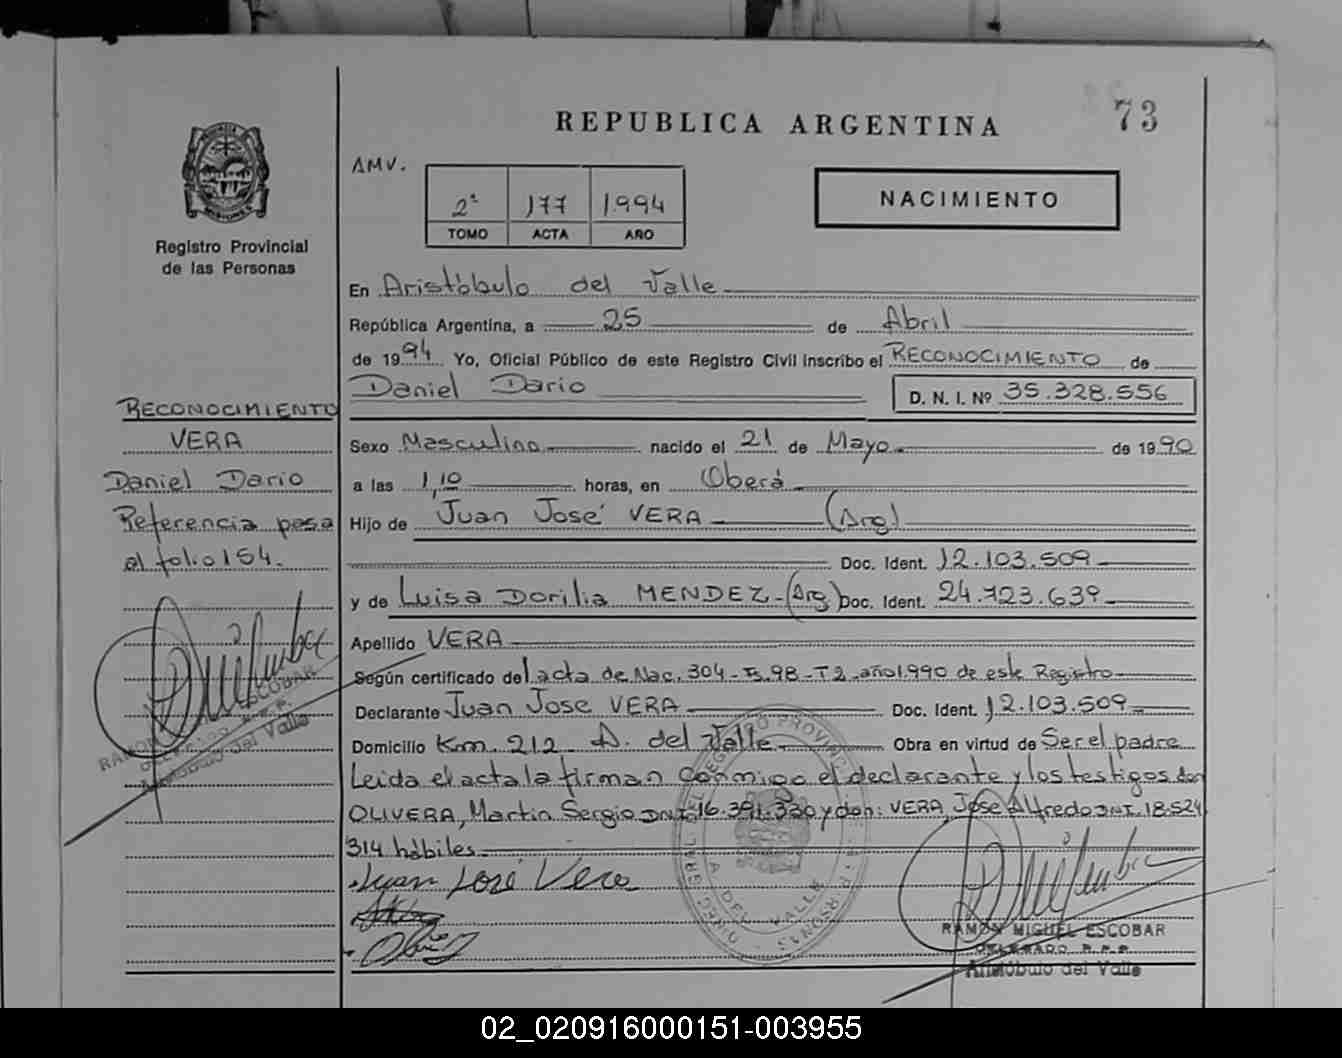 73
REPUBLICA ARGENTINA
AMV.
2º 177 1.994
TOMO ACTA AÑO
NACIMIENTO
PROVINCIA DE
MISIONES
Registro Provincial
de las Personas
En Aristóbulo del Valle
República Argentina, a 25 de Abril
de 1994 Yo, Oficial Público de este Registro Civil inscribo el RECONOCIMIENTO de
Daniel Dario D. N. I. Nº 35.328.556
Sexo Masculino nacido el 21 de Mayo de 1990
a las 1,10 horas, en Oberá
Hijo de Juan José VERA (Arg)
Doc. Ident. 12.103.509
y de Luisa Dorilia MENDEZ - (Arg) Doc. Ident. 24.723.639
Apellido VERA
Según certificado del acta de Nac. 304 - F. 98 - T 2 - año 1.990 de este Registro
Declarante Juan Jose VERA Doc. Ident. 12.103.509
Domicilio Km. 212 - A. del Valle Obra en virtud de Ser el padre
Leida el acta la firman conmigo el declarante y los testigos don
OLIVERA, Martin Sergio DNI. 16.391.330 y don: VERA, Jose Alfredo DNI. 18.524
314 hábiles.
Juan José Vera
RAMON MIGUEL ESCOBAR
DELEGADO R.P.P.
Aristóbulo del Valle
RECONOCIMIENTO
VERA
Daniel Dario
Referencia pasa
al folio 154.
RAMON ESCOBAR
DELEGADO R.P.P.
Aristóbulo del Valle
A. DEL VALLE
02_020916000151-003955